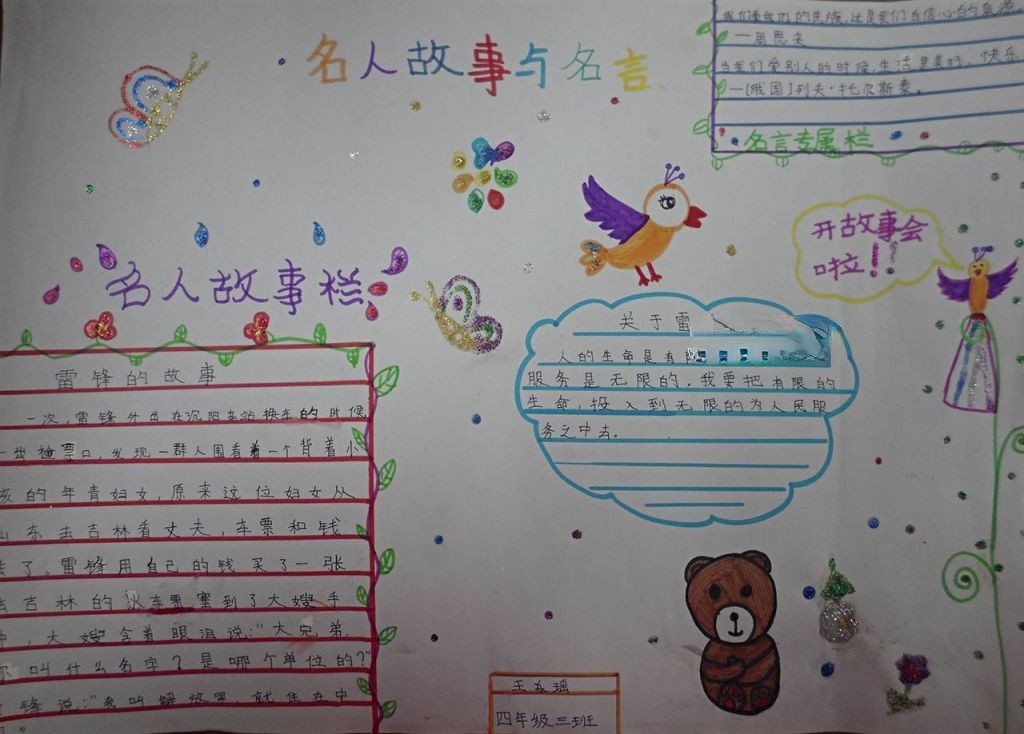 名人故事与名言
我们爱我们的民族,这是我们自信心的泉源。
—周恩来
当我们爱别人的时候,生活是美好、快乐
—[俄国]列夫·托尔斯泰。
名言专属栏
开故事会
啦!!
名人故事栏
雷锋的故事
一次,雷锋外出在沉阳车站换车的时候
一出检票口,发现一群人围看着一个背着小
孩的年青妇女,原来这位妇女从
山东去吉林看丈夫,车票和钱
丢了。雷锋用自己的钱买了一张
去吉林的火车票塞到了大嫂手
中,大嫂含着眼泪说:“大兄弟,
你叫什么名字?是哪个单位的?”
雷锋说:“我叫解放军,就住在中
关于雷
人的生命是有
服务是无限的,我要把有限的
生命,投入到无限的为人民服
务之中去。
四年级三班